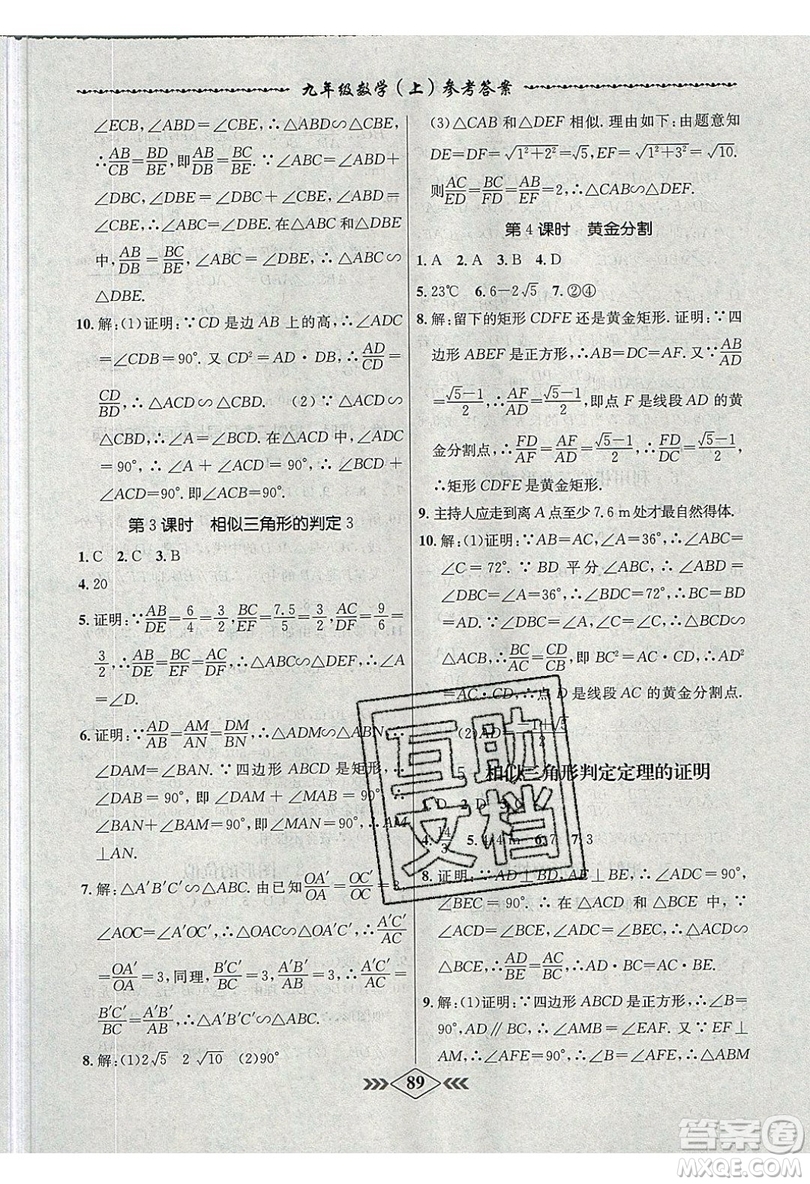 九年级数学(上)参考答案
∠ECB,∠ABD=∠CBE,∴△ABD∽△CBE,
∴AB/CB=BD/BE,即AB/BD=CB/BE. ∵∠ABC=∠ABD+
∠DBC,∠DBE=∠CBE+∠DBC,∠ABD=
∠CBE,∴∠ABC=∠DBE. 在△ABC和△DBE
中,∵AB/DB=BC/BE,∠ABC=∠DBE,∴△ABC∽
△DBE.
10. 解:(1)证明:∵CD是边AB上的高,∴∠ADC
=∠CDB=90°. 又CD²=AD·BD,∴AD/CD=
CD/BD,∴△ACD∽△CBD. (2)∵△ACD∽
△CBD,∴∠A=∠BCD. 在△ACD中,∠ADC
=90°,∴∠A+∠ACD=90°,∴∠BCD+
∠ACD=90°,即∠ACB=90°.
第3课时 相似三角形的判定3
1. C 2. C 3. B
4. 20
5. 证明:∵AB/DE=6/4=3/2,BC/EF=7.5/5=3/2,AC/DF=9/6=
3/2,∴AB/DE=BC/EF=AC/DF,∴△ABC∽△DEF,∴∠A=
∠D.
6. 证明:∵AD/AB=AM/AN=DM/BN,∴△ADM∽△ABN,∴
∠DAM=∠BAN. ∵四边形ABCD是矩形,∴
∠DAB=90°,即∠DAM+∠MAB=90°,∴
∠BAN+∠BAM=90°,即∠MAN=90°,∴AM
⊥AN.
7. 解:△A′B′C′∽△ABC. 由已知OA′/OA=OC′/OC=3,
∠AOC=∠A′OC′,∴△AOC∽△A′OC′,∴A′C′/AC
=OA′/OA=3,同理B′C′/BC=3,A′B′/AB=3,∴A′C′/AC=
B′C′/BC=A′B′/AB,∴△A′B′C′∽△ABC.
8. 解:(1)2√5 2√10 (2)90°
(3)△CAB和△DEF相似. 理由如下:由题意知
DE=DF=√(1²+2²)=√5,EF=√(1²+3²)=√10.
则AC/ED=BC/FD=AB/EF,∴△ABC∽△DEF.
第4课时 黄金分割
1. A 2. A 3. B 4. D
5. 23℃ 6. 6-2√5 7. ②④
8. 解:留下的矩形CDFE还是黄金矩形. 证明:∵四
边形ABEF是正方形,∴AB=DC=AF. 又∵AB/AD=
(√5-1)/2,∴AF/AD=(√5-1)/2,即点F是线段AD的黄
金分割点,∴FD/AF=AF/AD=(√5-1)/2,∴FD/DC=(√5-1)/2,
∴矩形CDFE是黄金矩形.
9. 主持人应走到离A点至少7.6 m处才最自然得体.
10. 解:(1)证明:∵AB=AC,∠A=36°,∴∠ABC=
∠C=72°. ∵BD平分∠ABC,∴∠ABD=
∠DBC=∠A=36°,∠BDC=∠C=72°,∴BC=
BD=AD. ∵∠DBC=∠A,∠C=∠C,∴△CBD∽
△CAB,∴BC/AC=CD/CB,即BC²=AC·CD,∴AD²
=AC·CD,∴点D是线段AC的黄金分割点.
相似三角形判定定理的证明
4. 14/3 7. 3
8. 证明:∵AB⊥BD,AE⊥BD,∴∠ADC=90°,
∠BEC=90°. ∴在△ACD和△BCE中,∵
∠ACD=∠BCE,∠ADC=∠BEC,∴△ACD∽
△BCE,∴AD/BE=AC/BC,∴AD·BC=AC·BE.
9. 解:(1)证明:∵四边形ABCD是正方形,∴∠B=
90°,AD∥BC,∴∠AMB=∠EAF. 又∵EF⊥
AM,∴∠AFE=90°,∴∠B=∠AFE,∴△ABM
89
互助
文档
答案圈
MXQE.COM